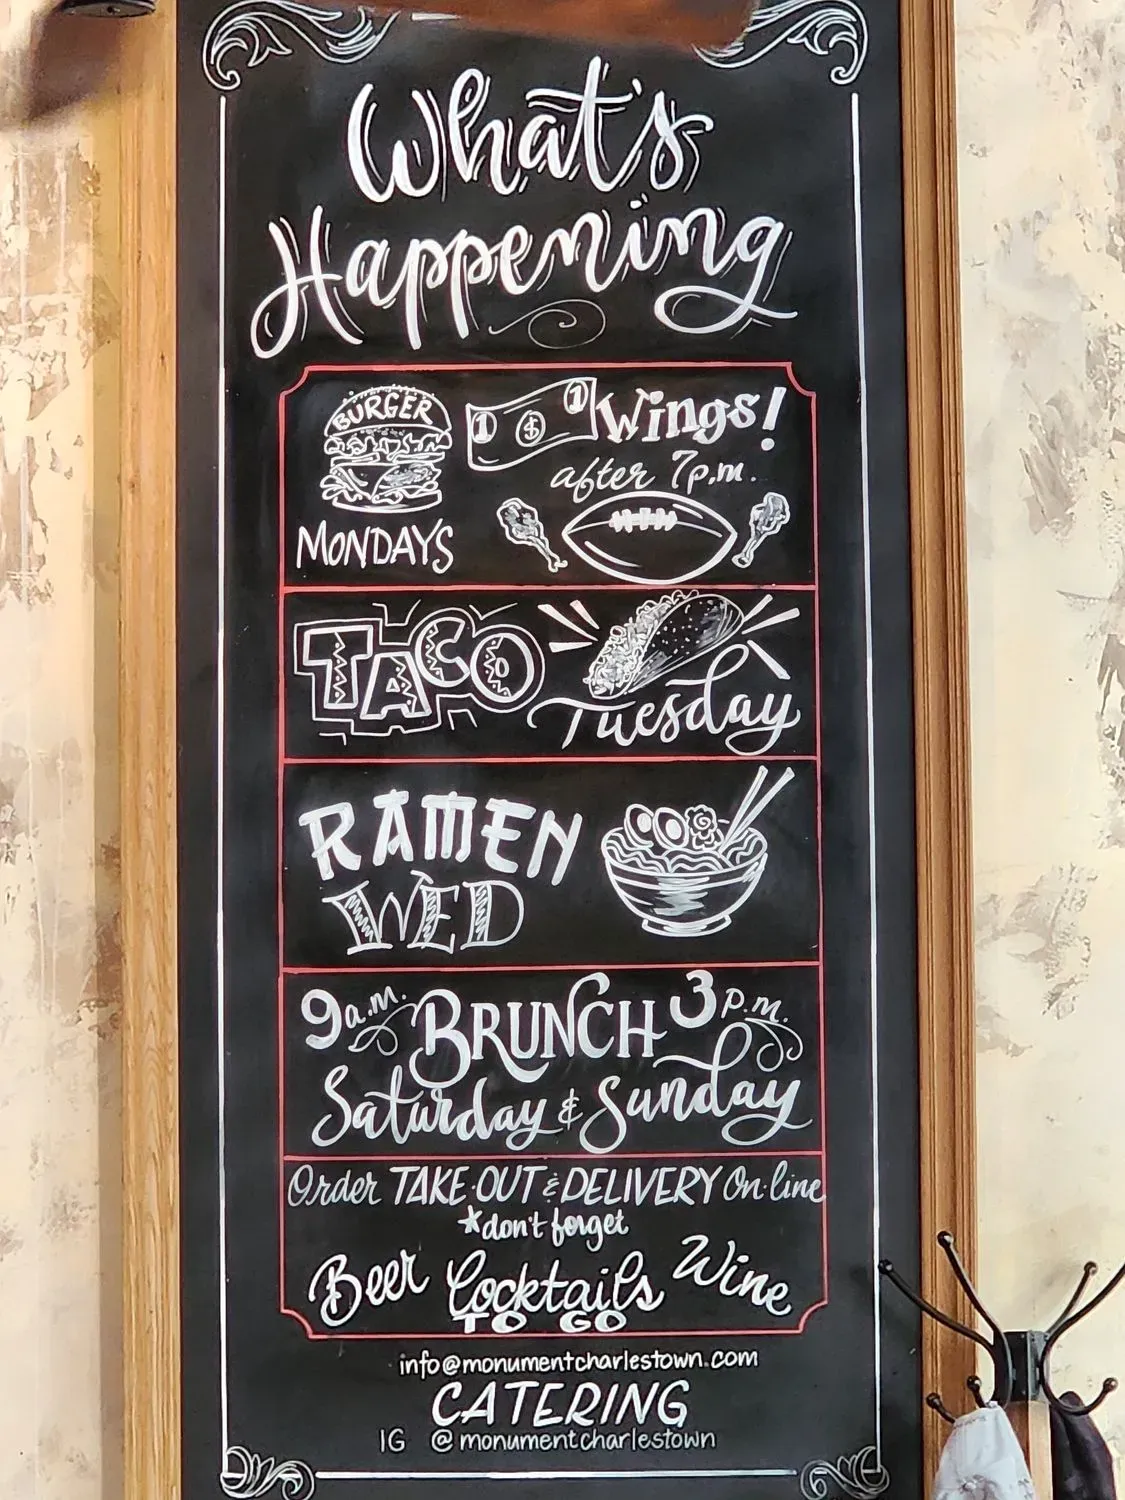 What's
Happening
BURGER
MONDAYS
1 $ 1 Wings!
after 7p.m.
TACO
Tuesday
RAMEN
WED
9a.m. BRUNCH 3p.m.
Saturday & Sunday
Order TAKE·OUT & DELIVERY On·line
*don't forget
Beer Cocktails Wine
TO GO
info@monumentcharlestown.com
CATERING
IG @monumentcharlestown